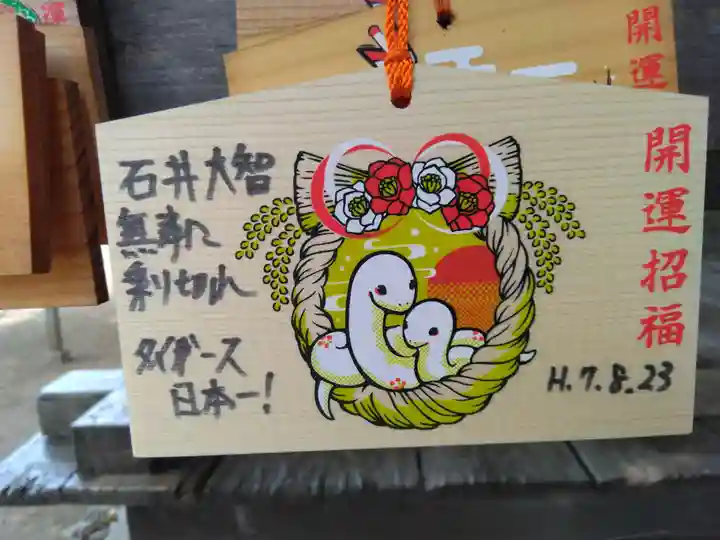 石井大智
無事に
乗り切れ
タイガース
日本一!
開運招福
H.7.8.23
開運
運